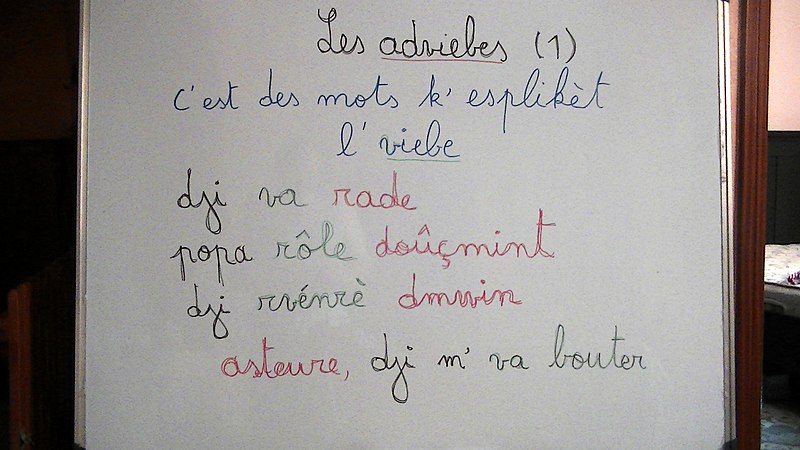 Les adviebes (1)
c'est des mots k' esplikèt
l' viebe
dji va rade
popa rôle doûçmint
dji rvénrè dmwin
asteure, dji m' va bouter